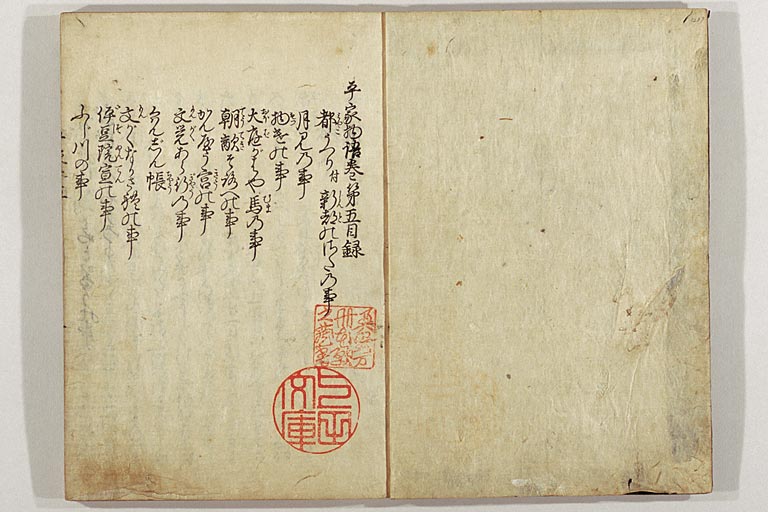 平家物語巻第五目録
都うつり付新都のさたの事
月見乃事
物怪の事
大庭がはや馬乃事
朝敵そろへの事
かんやう宮の事
文覚あら行乃事
くわんじん帳
文がくながされの事
伊豆院宣の事
ふじ川の事
文庫